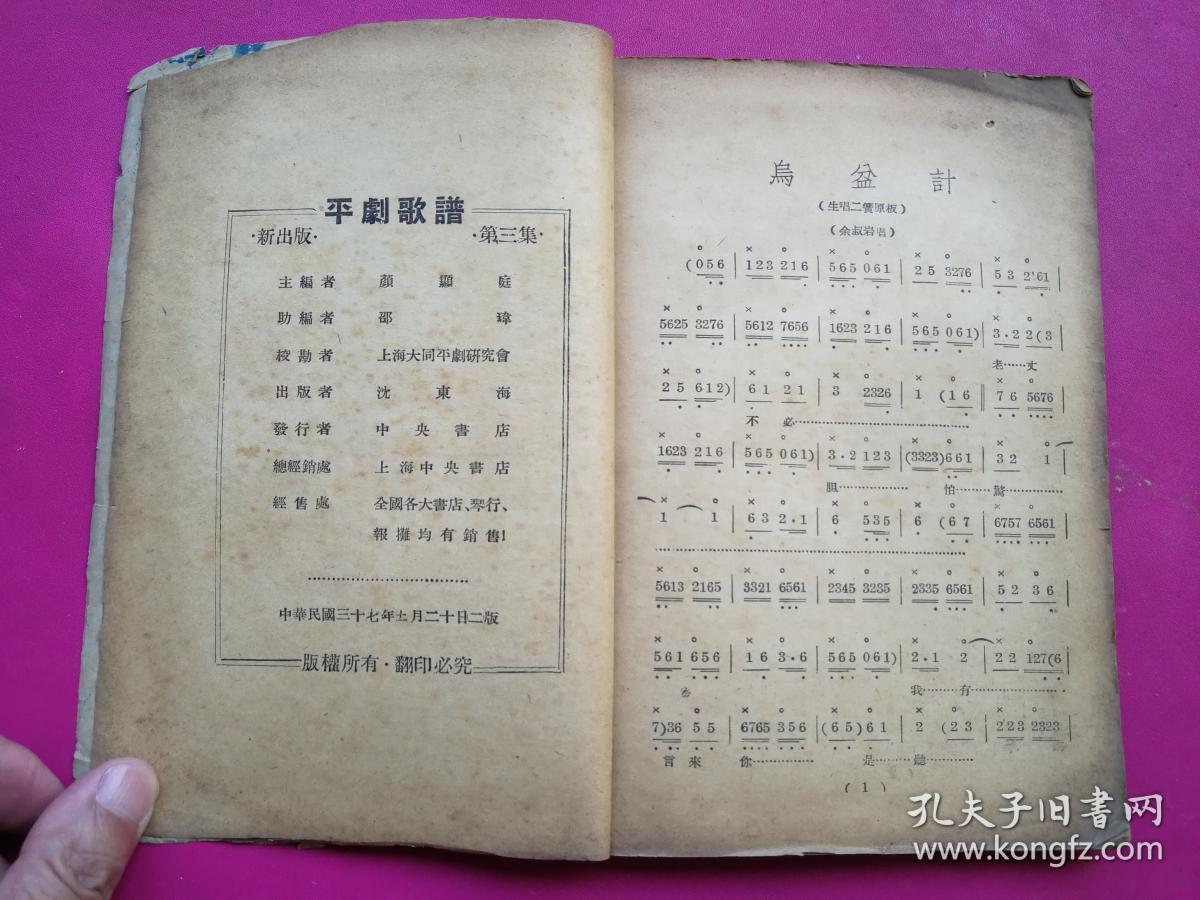 平劇歌譜
·新出版· ·第三集·
主編者 顏顯庭
助編者 邵瑋
校勘者 上海大同平劇研究會
出版者 沈東海
發行者 中央書店
總經銷處 上海中央書店
經售處 全國各大書店、琴行、
報攤均有銷售!
中華民國三十七年十一月二十日二版
版權所有·翻印必究
烏盆計
(生唱二簧原板)
(余叔岩唱)
(056 | 123 216 | 565 061 | 25 3276 | 53 2161
5625 3276 | 5612 7656 | 1623 216 | 565 061) | 3·2 2(3
老……丈
25 612) | 61 21 | 3 2326 | 1 (16 | 76 5676
不必
1623 216 | 565 061) | 3·2 123 | (3323)661 | 32 1
胆……怕……驚
1 1 | 63 2·1 | 6 535 | 6 (67 | 6757 6561
5613 2165 | 3321 6561 | 2345 3235 | 2335 6561 | 52 36
561 656 | 16 3·6 | 565 061) | 2·1 2 | 22 127(6
我……有
7)36 55 | 6765 356 | (65)61 | 2 (23 | 223 2323
言來你……是……聽
(1)
孔夫子旧书网
www.kongfz.com